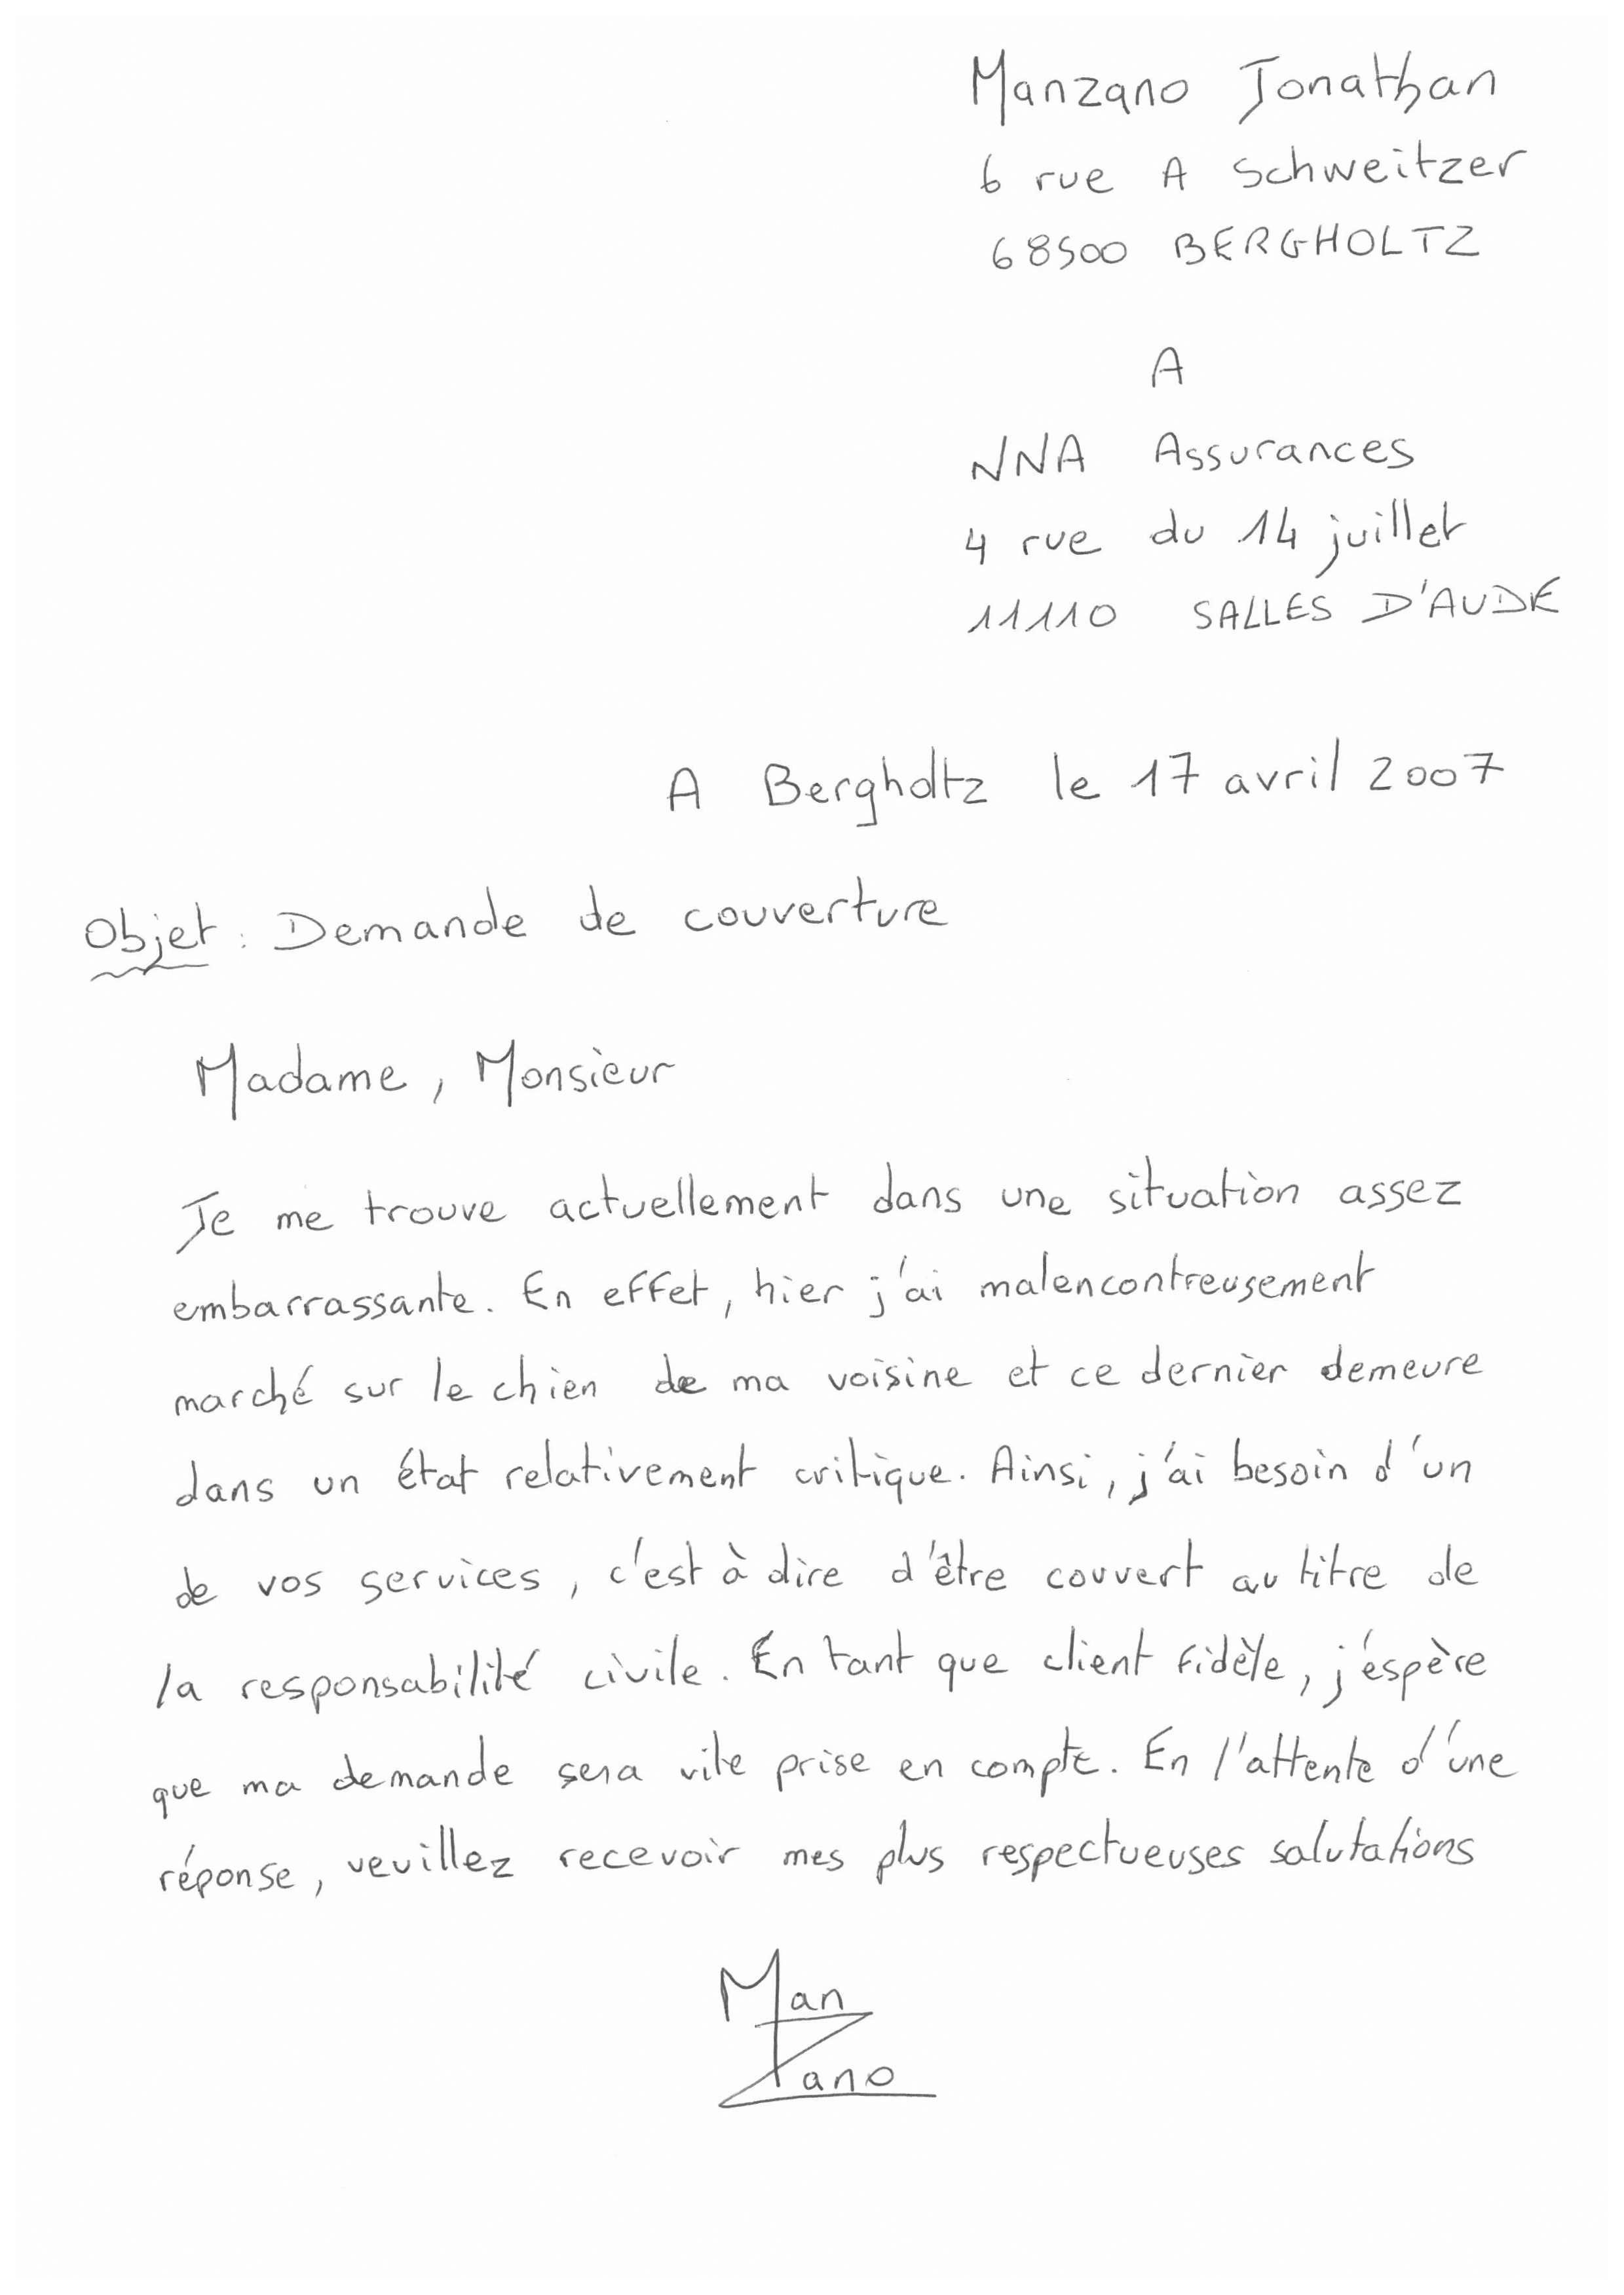 Manzano Jonathan
6 rue A Schweitzer
68500 BERGHOLTZ
A
NNA Assurances
4 rue du 14 juillet
11110 SALLES D'AUDE
A Bergholtz le 17 avril 2007
Objet : Demande de couverture
Madame, Monsieur
Je me trouve actuellement dans une situation assez
embarrassante. En effet, hier j'ai malencontreusement
marché sur le chien de ma voisine et ce dernier demeure
dans un état relativement critique. Ainsi, j'ai besoin d'un
de vos services, c'est à dire d'être couvert au titre de
la responsabilité civile. En tant que client fidèle, j'espère
que ma demande sera vite prise en compte. En l'attente d'une
réponse, veuillez recevoir mes plus respectueuses salutations
Man
Zano